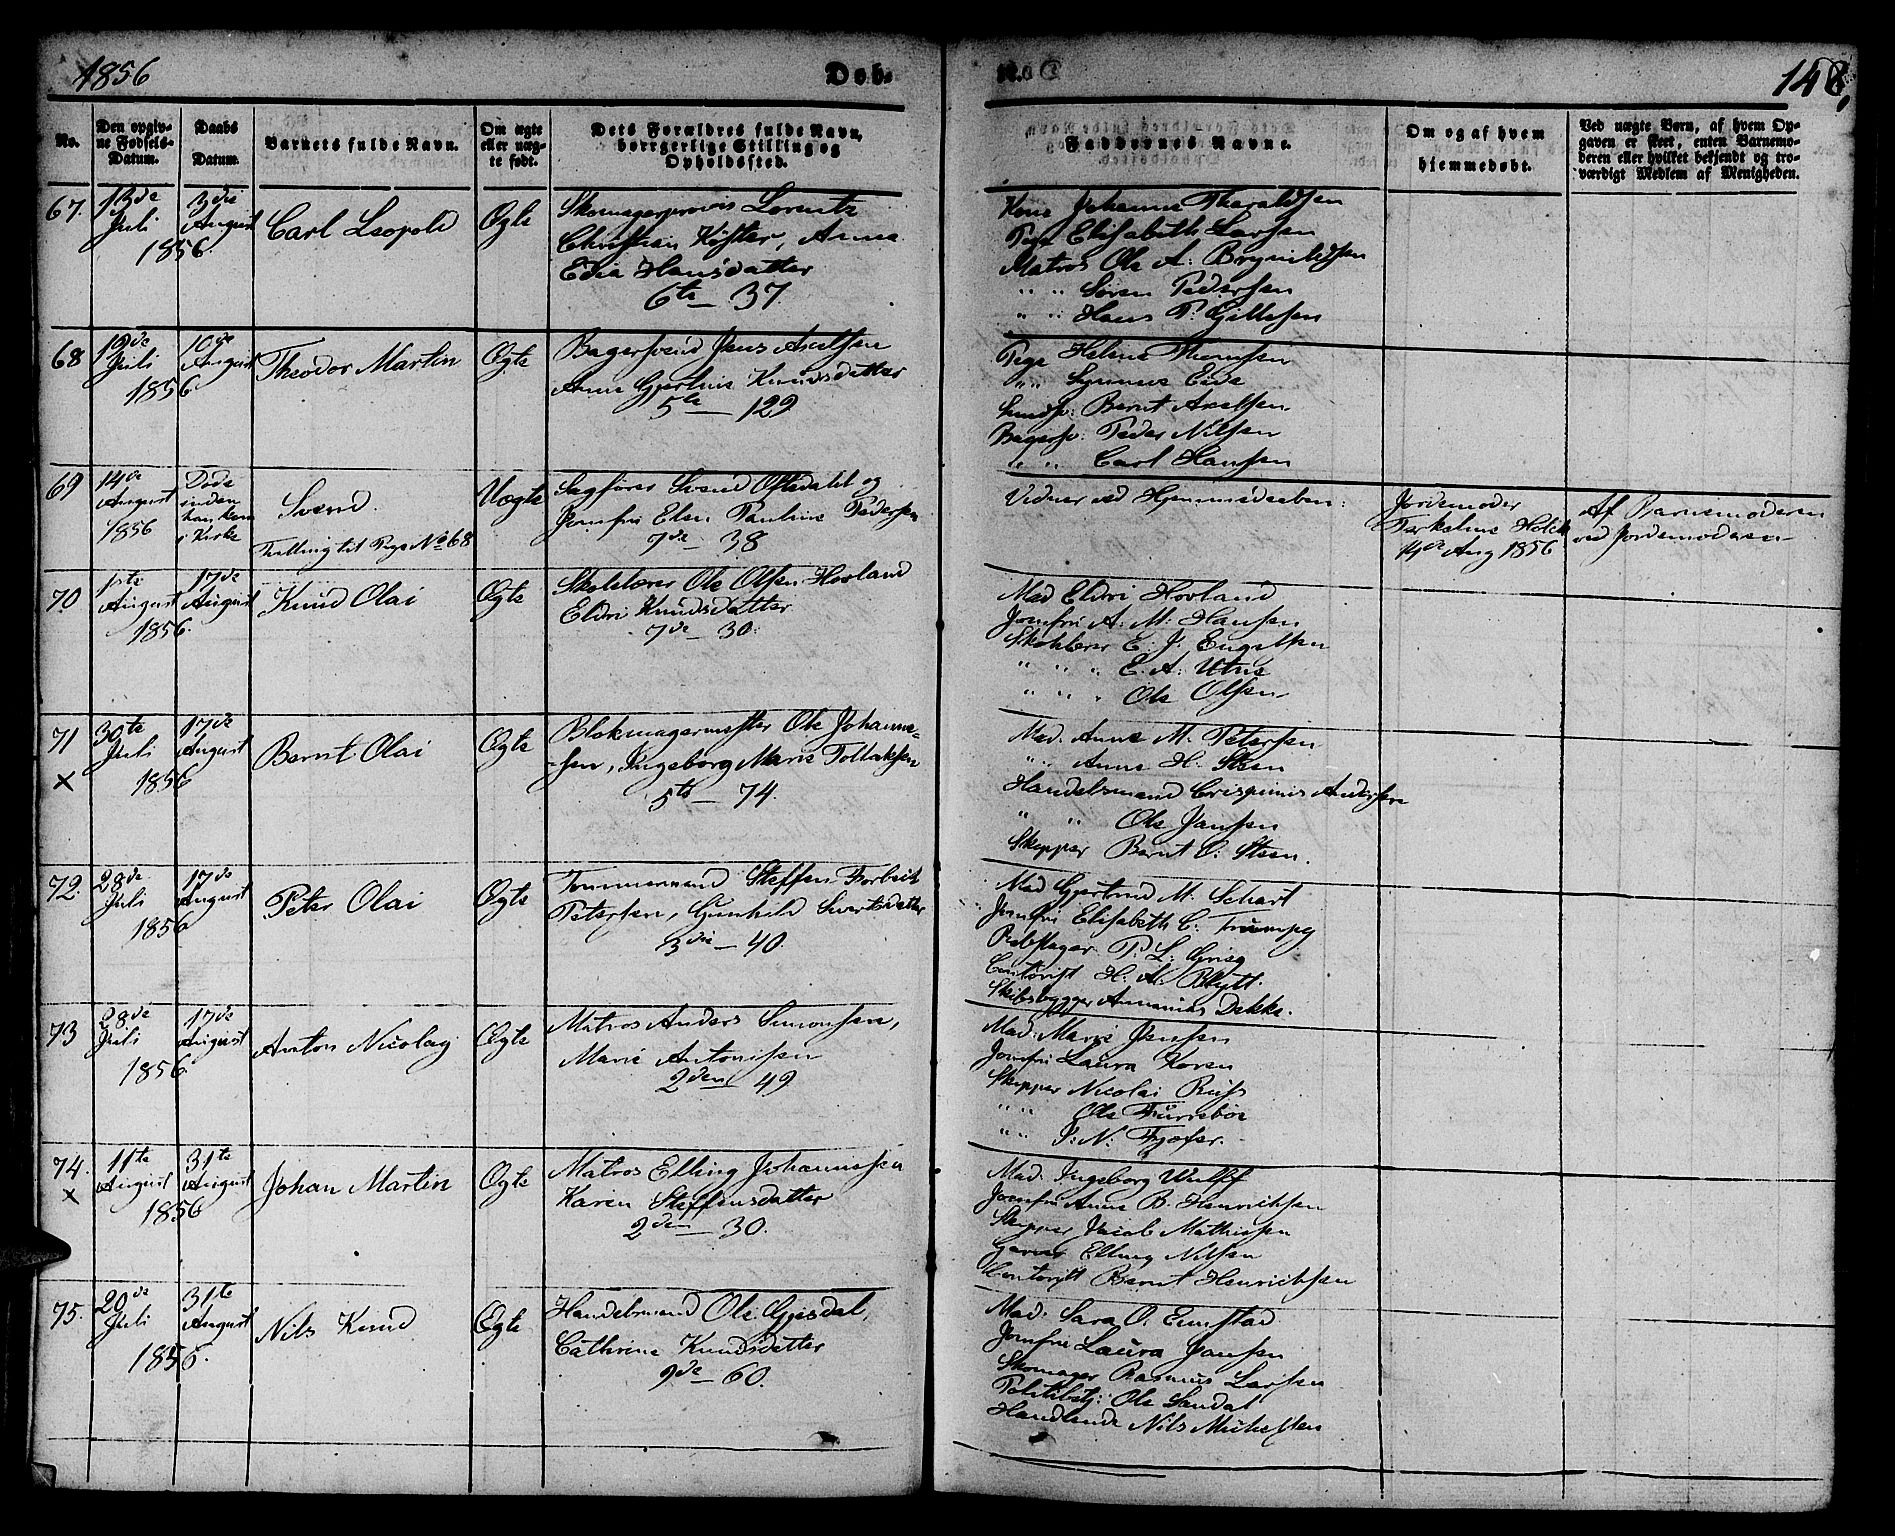 1856
Døb-
148,
No.
Den opgiv-
ne Fødsels-
Datum.
Daabs
Datum.
Barnets fulde Navn.
Om ægte
eller uæg-
te født.
Dets Forældres fulde Navn,
borgerlige Stilling og
Opholdssted.
Faddernes Navne.
Om og af hvem
hjemmedøbt.
Ved uægte Børn, af hvem Op-
gaven er skeet, enten Barnemo-
deren eller hvilket bekjendt og tro-
værdigt Medlem af Menigheden.
67.
13de
Juli
1856.
3die
August
Carl Leopold
Ægte
Skomagerprovis Lorentz
Christian Køster, Anna
Edia Hansdatter
6te — 37
Kone Johanne Tharaldsen
Pige Elisabeth Larsen
Matros Ole A. Brynildsen
" " Søren Pedersen
" " Hans P. Gillesen
68
19de
Juli
1856
10de
August
Theodor Martin
Ægte
Bagersvend Jens Axelsen
Anne Gjertine Knudsdatter
5te — 129
Pige Helene Thomsen
" " Synneve Eide
Smedsv: Bernt Axelsen
Bagersv: Peder Nilsen
" " Carl Hansen
69
14de
August
1856
Døde
inden
han kom
i Kirke
Svend.
Tvilling til Pige No 68
Uægte
Sagfører Svend Oftedahl og
Jomfru Elen Pauline Pedersen
7de — 38
Vidner ved Hjemmedaaben:
Jordemoder
Terkeline Holck
14de Aug 1856
Af Barnemoderen
ved Jordemoderen
70
1ste
August
1856.
17de
August
Knud Olai
Ægte
Skolelærer Ole Olsen Hovland
Eldri Knudsdatter
7de — 30.
Mad Eldri Hovland
Jomfru A. M. Hansen
Skolelærer E. J. Engelsen
" " " E. A. Utne
" " " Ole Olsen
71
×
30te
Juli
1856
17de
August
Bernt Olai
Ægte
Blokmagermester Ole Johanne-
sen, Ingeborg Marie Tollaksen
5te — 74.
Mad. Anne M. Petersen
" " Anne H. Steen
Handelsmand Crispinus Andersen
" " Ole Jansen
Skipper Bernt O. Steen.
72.
28de
Juli
1856
17de
August
Peter Olai
Ægte
Tømmermand Steffen
Petersen, Gunhild
3die — 40.
Mad Gjertrud M. Schart
Jomfru Elisabeth C. Trumpy
Rebslager P. L. Grieg
Contorist H. A. Blytt.
Skibsbygger Annanias Dekke.
73
28de
Juli
1856
17de
August
Anton Nicolay
Ægte
Matros Anders Simonsen,
Marie Antonisen
2den 49
Mad: Marie Jensen
Jomfru Laura Koren
Skipper Nicolai Russ
" " Ole Furrebøe
" " J: N: Fjøser.
74.
×
11te
August
1856
31te
August
Johan Martin
Ægte
Matros Elling Johannesen
Karen Steffensdatter
2den — 30.
Mad. Ingeborg Wulff
Jomfru Anne B. Henriksen
Skipper Jacob Mathiesen
Garver Elling Nilsen
Contorist Bernt Henrichsen
75.
20de
Juli
1856.
31te
August
Nils Knud
Ægte
Handelsmand Ole Gjesdal,
Cathrine Knudsdatter
9de — 60.
Mad. Sara O.
Jomfru Laura Jansen
Skomager Rasmus Larsen
Politibetj: Ole Sandal
Handlende Nils Michelsen